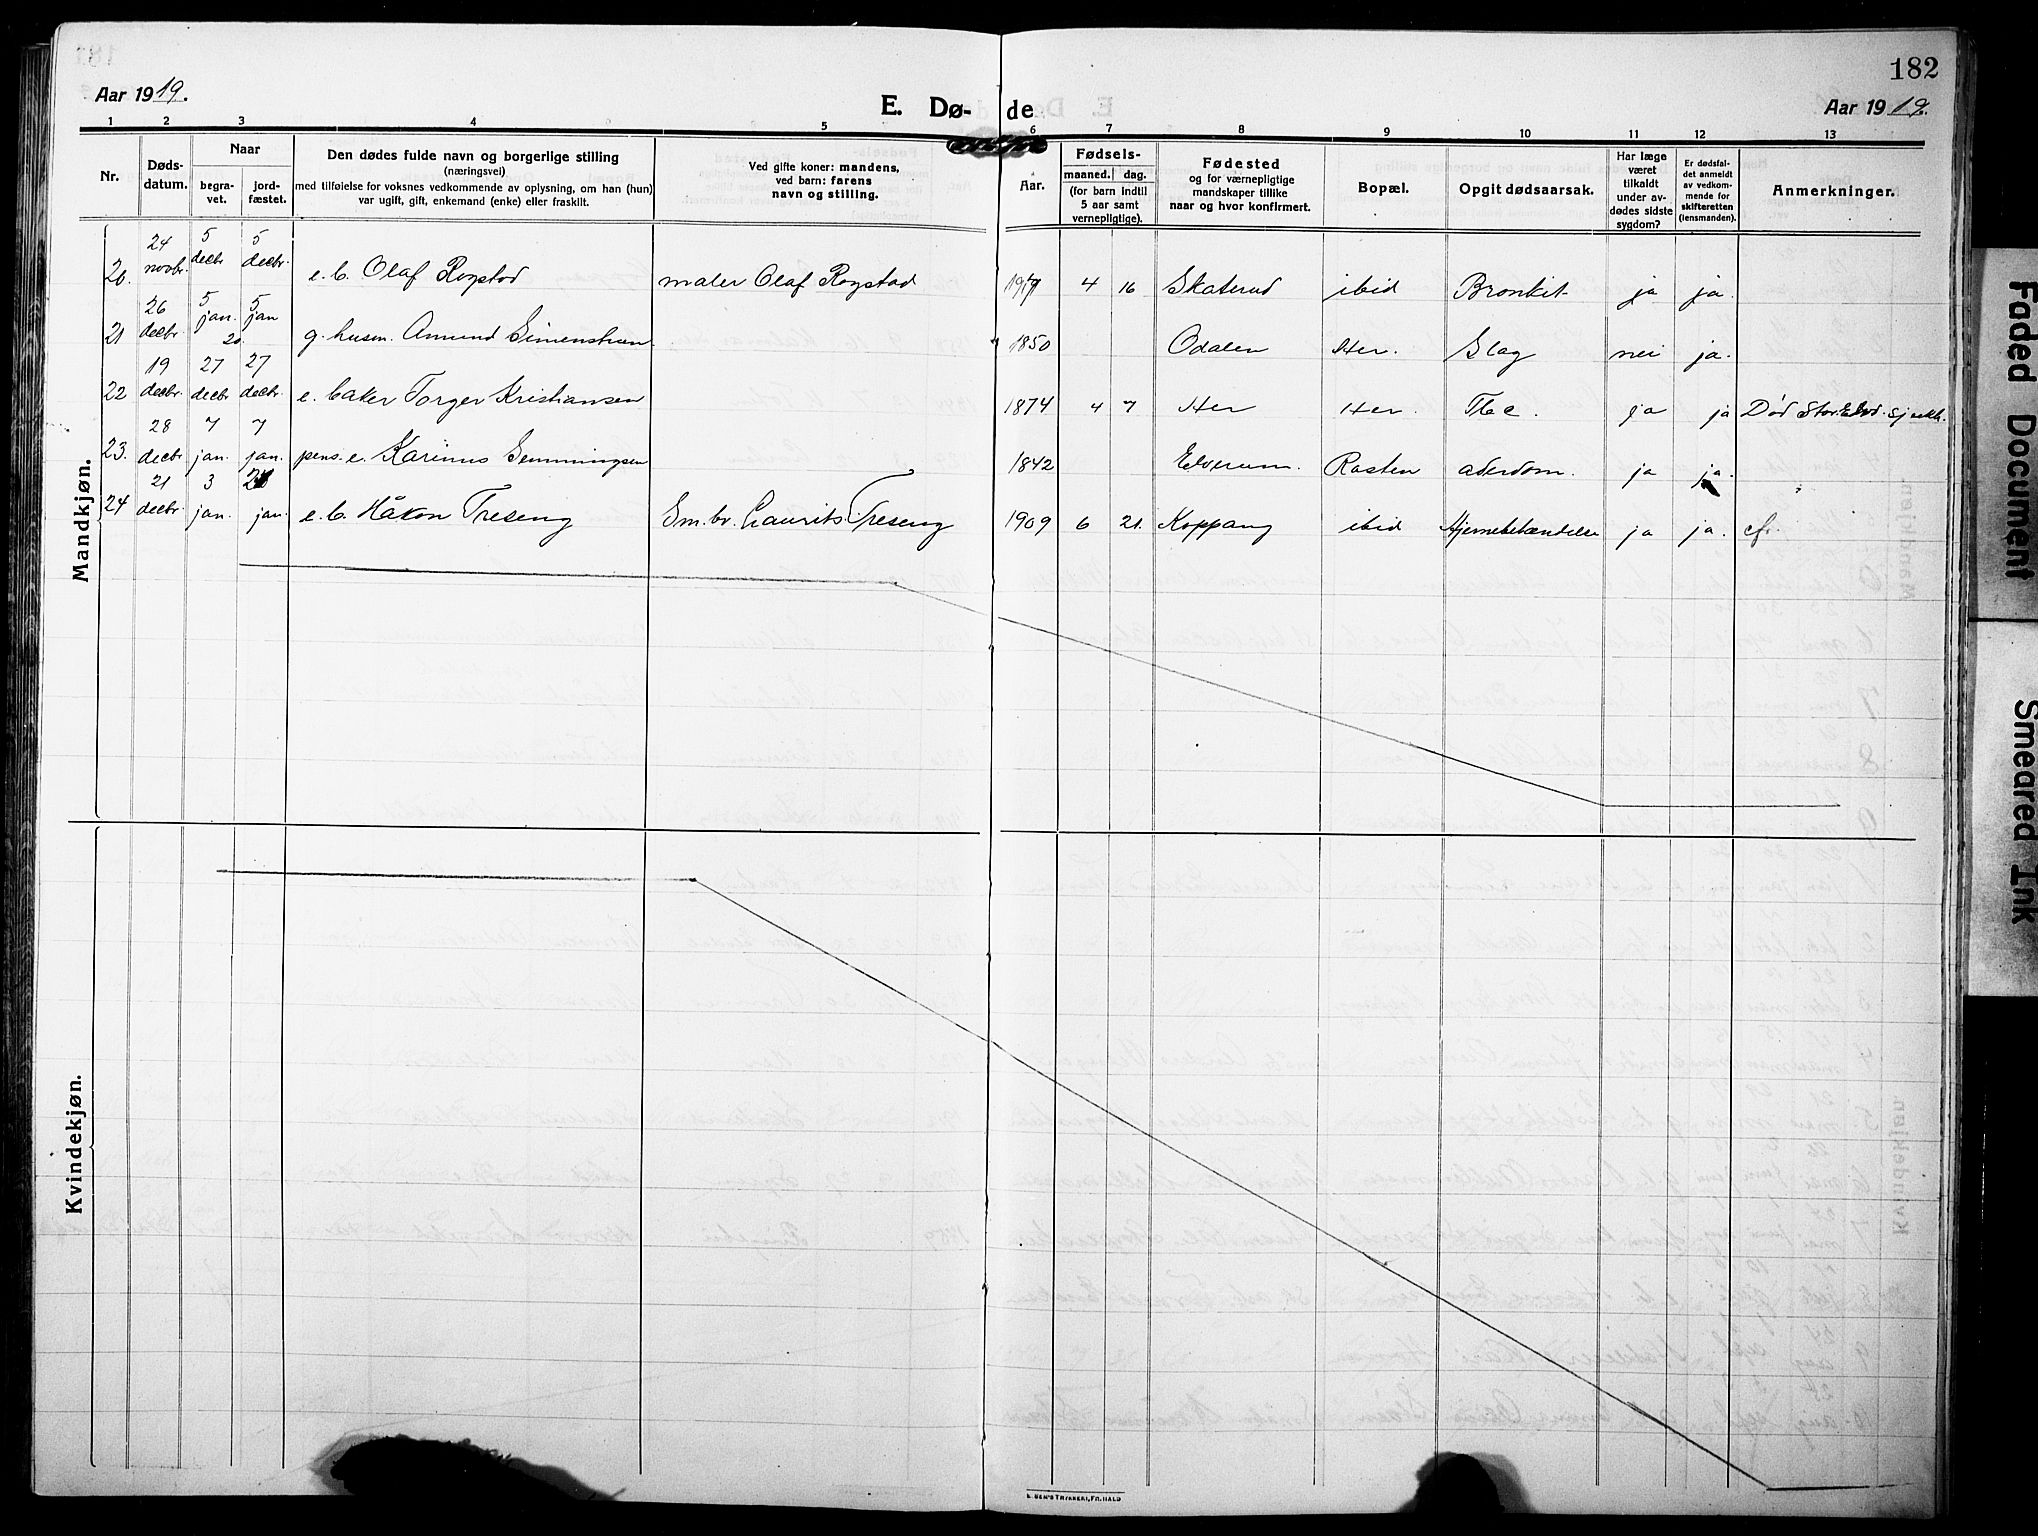 182
Aar 1919.
E. Dø-
de
Aar 1919.
1 2 3 4 5 6 7 8 9 10 11 12 13
Nr.
Døds-
datum.
Naar
begra-
vet.
jord-
fæstet.
Den dødes fulde navn og borgerlige stilling
(næringsvei)
med tilføielse for voksnes vedkommende av oplysning, om han (hun)
var ugift, gift, enkemand (enke) eller fraskilt.
Ved gifte koner: mandens,
ved barn: farens
navn og stilling.
Aar.
Fødsels-
maaned. dag.
(for barn indtil
5 aar samt
vernepligtige).
Fødested
og for værnepligtige
mandskaper tillike
naar og hvor konfirmert.
Bopæl.
Opgit dødsaarsak.
Har læge
været
tilkaldt
under av-
dødes sidste
sygdom?
Er dødsfal-
det anmeldt
av vedkom-
mende for
skifteretten
(lensmanden).
Anmerkninger.
Mandkjøn.
20. 24 novbr. 5 decbr 5 decbr. e. b. Olaf Rogstad maler Olaf Rogstad 4 16 Skaterud ibid Bronkit ja ja.
21 26 decbr. 5 jan. 5 jan g. husm. Amund Simenstuen 1850 Odalen Her. Slag nei ja.
22 19 decbr. 27 decbr 27 decbr. e. baker Torger Kristiansen 1874 4 7 Her Her. Tbc. ja ja Død Stor-Elvd. sjukh.
23. 28 decbr 7 jan. 7 jan. pens. e. Karinus Semmingsen 1842 Elverum. Rasten alderdom. ja ja.
24 21 decbr. 3 jan. jan. e. b. Håkon Treseng Sm. br. Laurits Treseng 1909 6 21. Koppang ibid Hjernebetændelse ja ja. cfr.
Kvindekjøn.
Faded Document
Smeared Ink